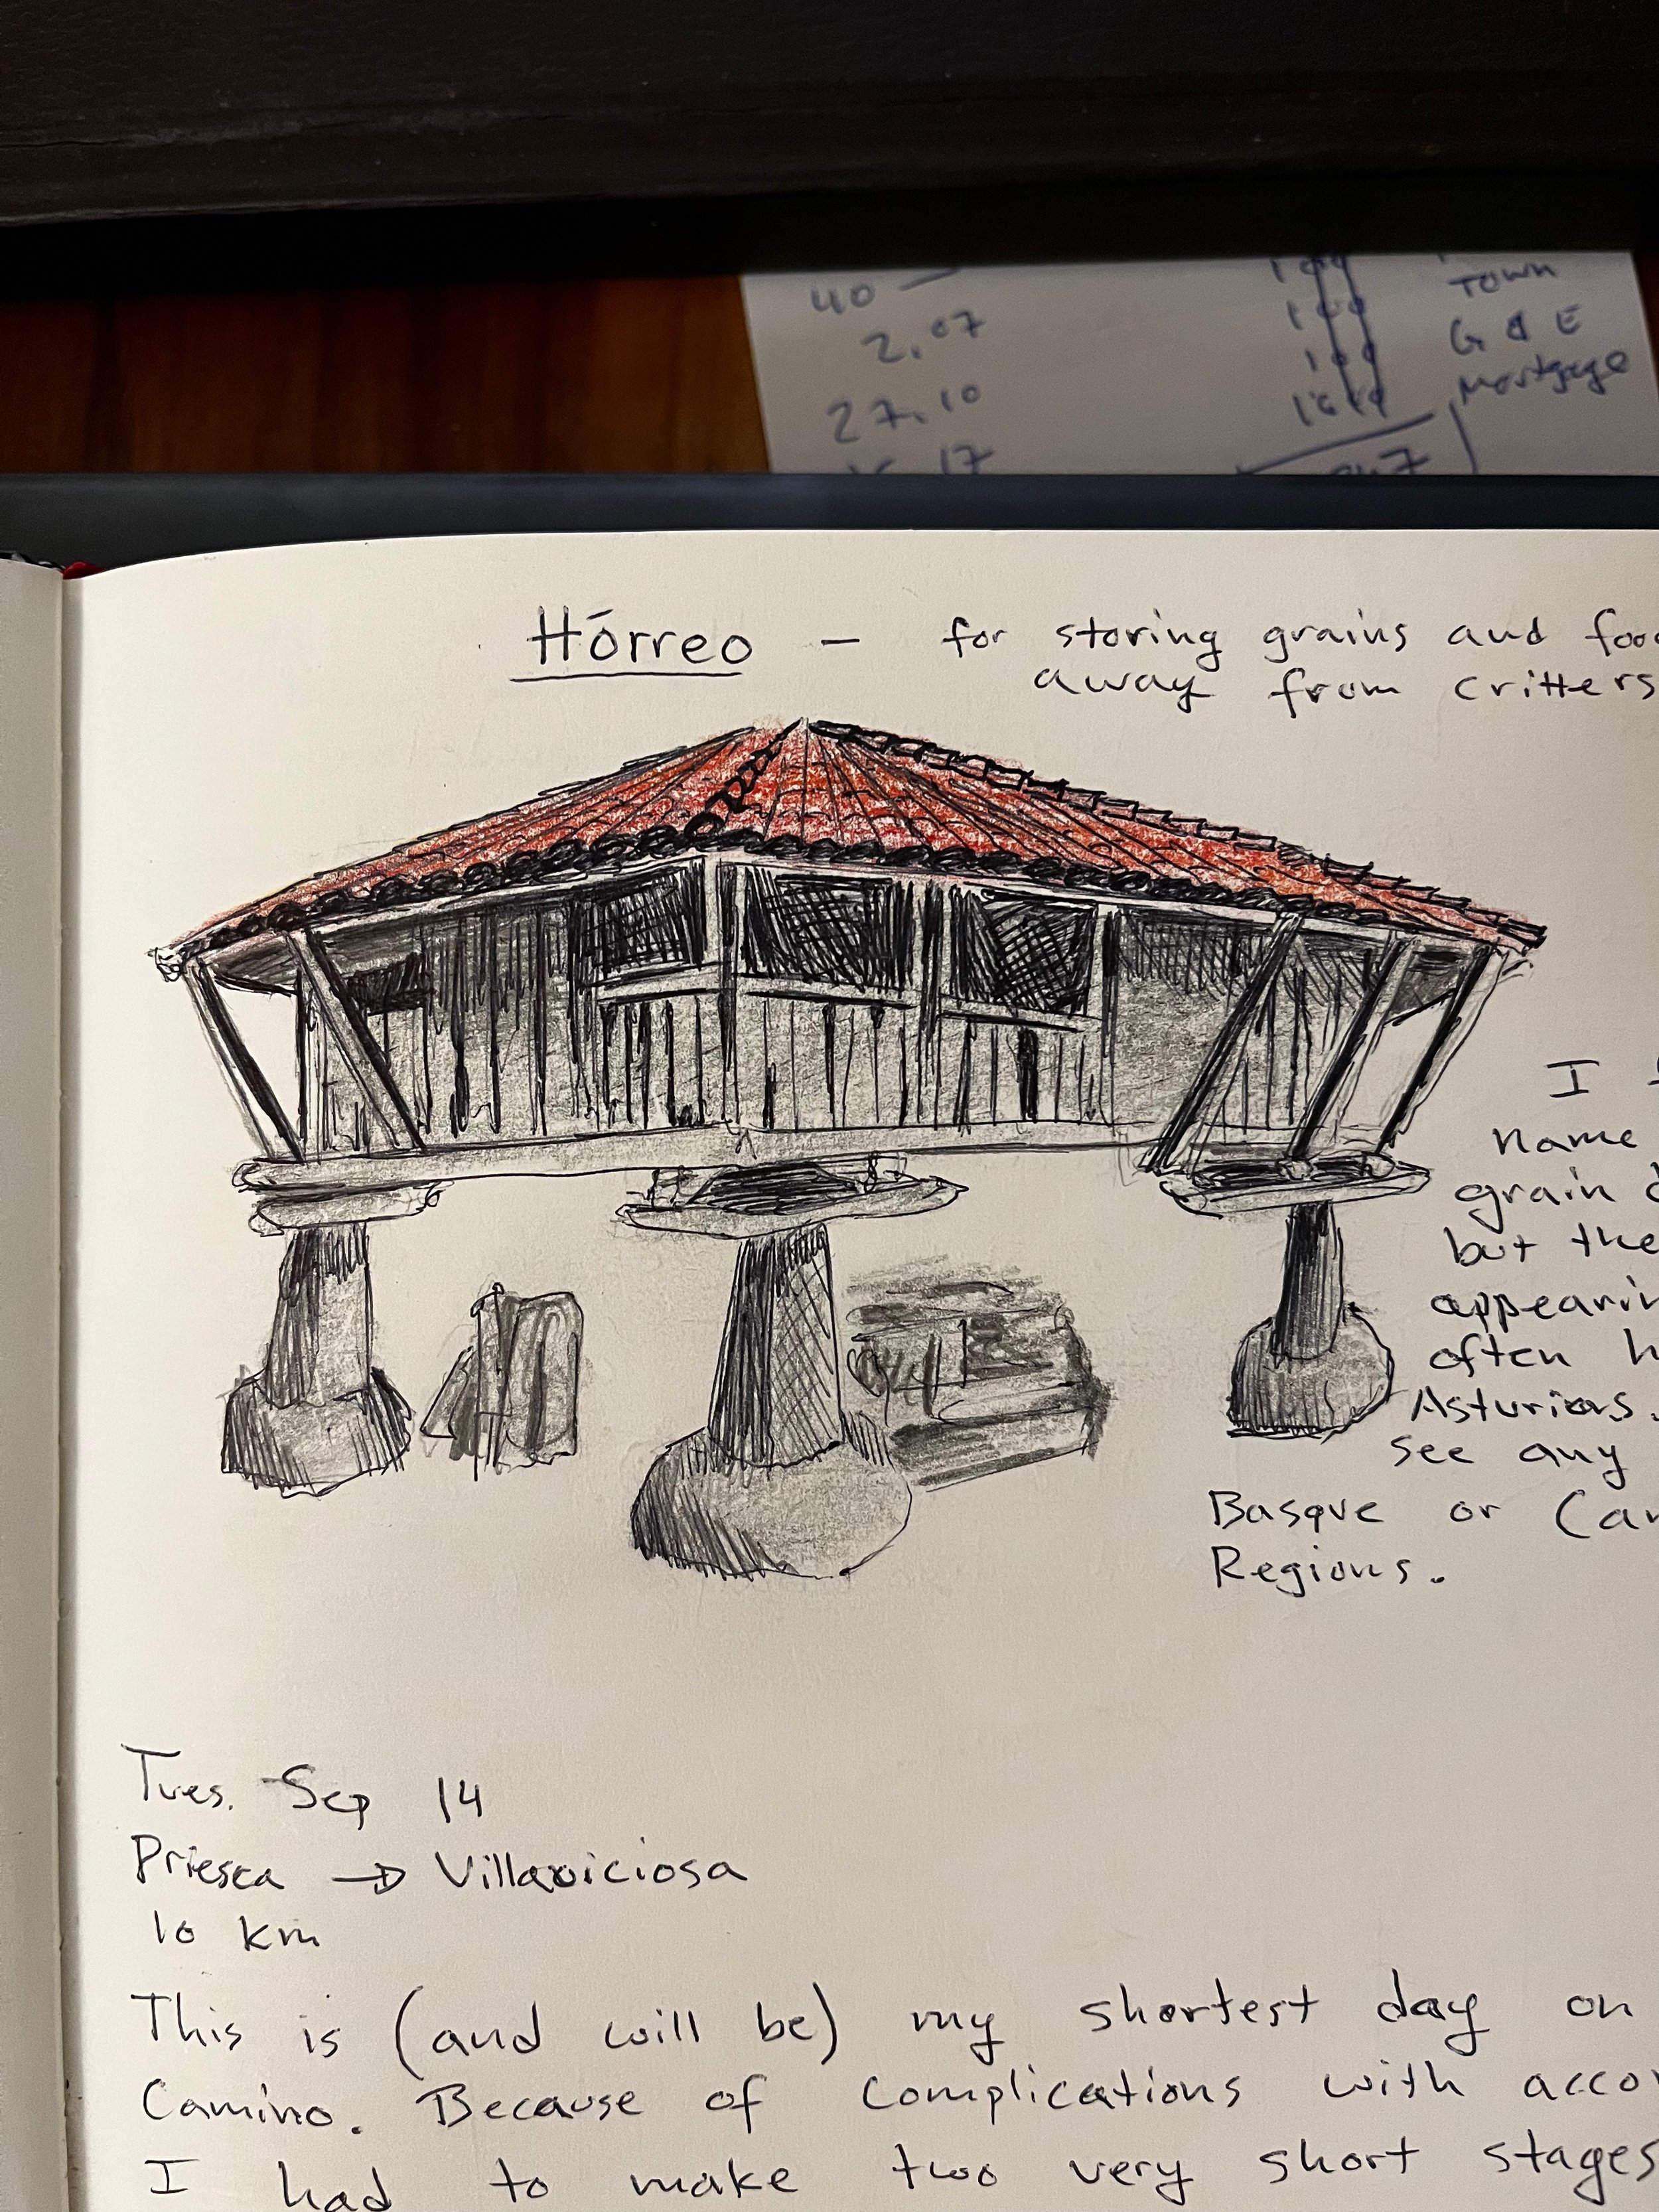 40
2.07
27.10
17
Town
G & E
Mortgage
Hórreo – for storing grains and
away from critters
I
name
grain
but the
often
Asturias.
see any
Basque or
Regions.
Tues. Sep 14
Priesca → Villaviciosa
10 km
This is (and will be) my shortest day on
Camino. Because of complications with
I had to make two very short stages